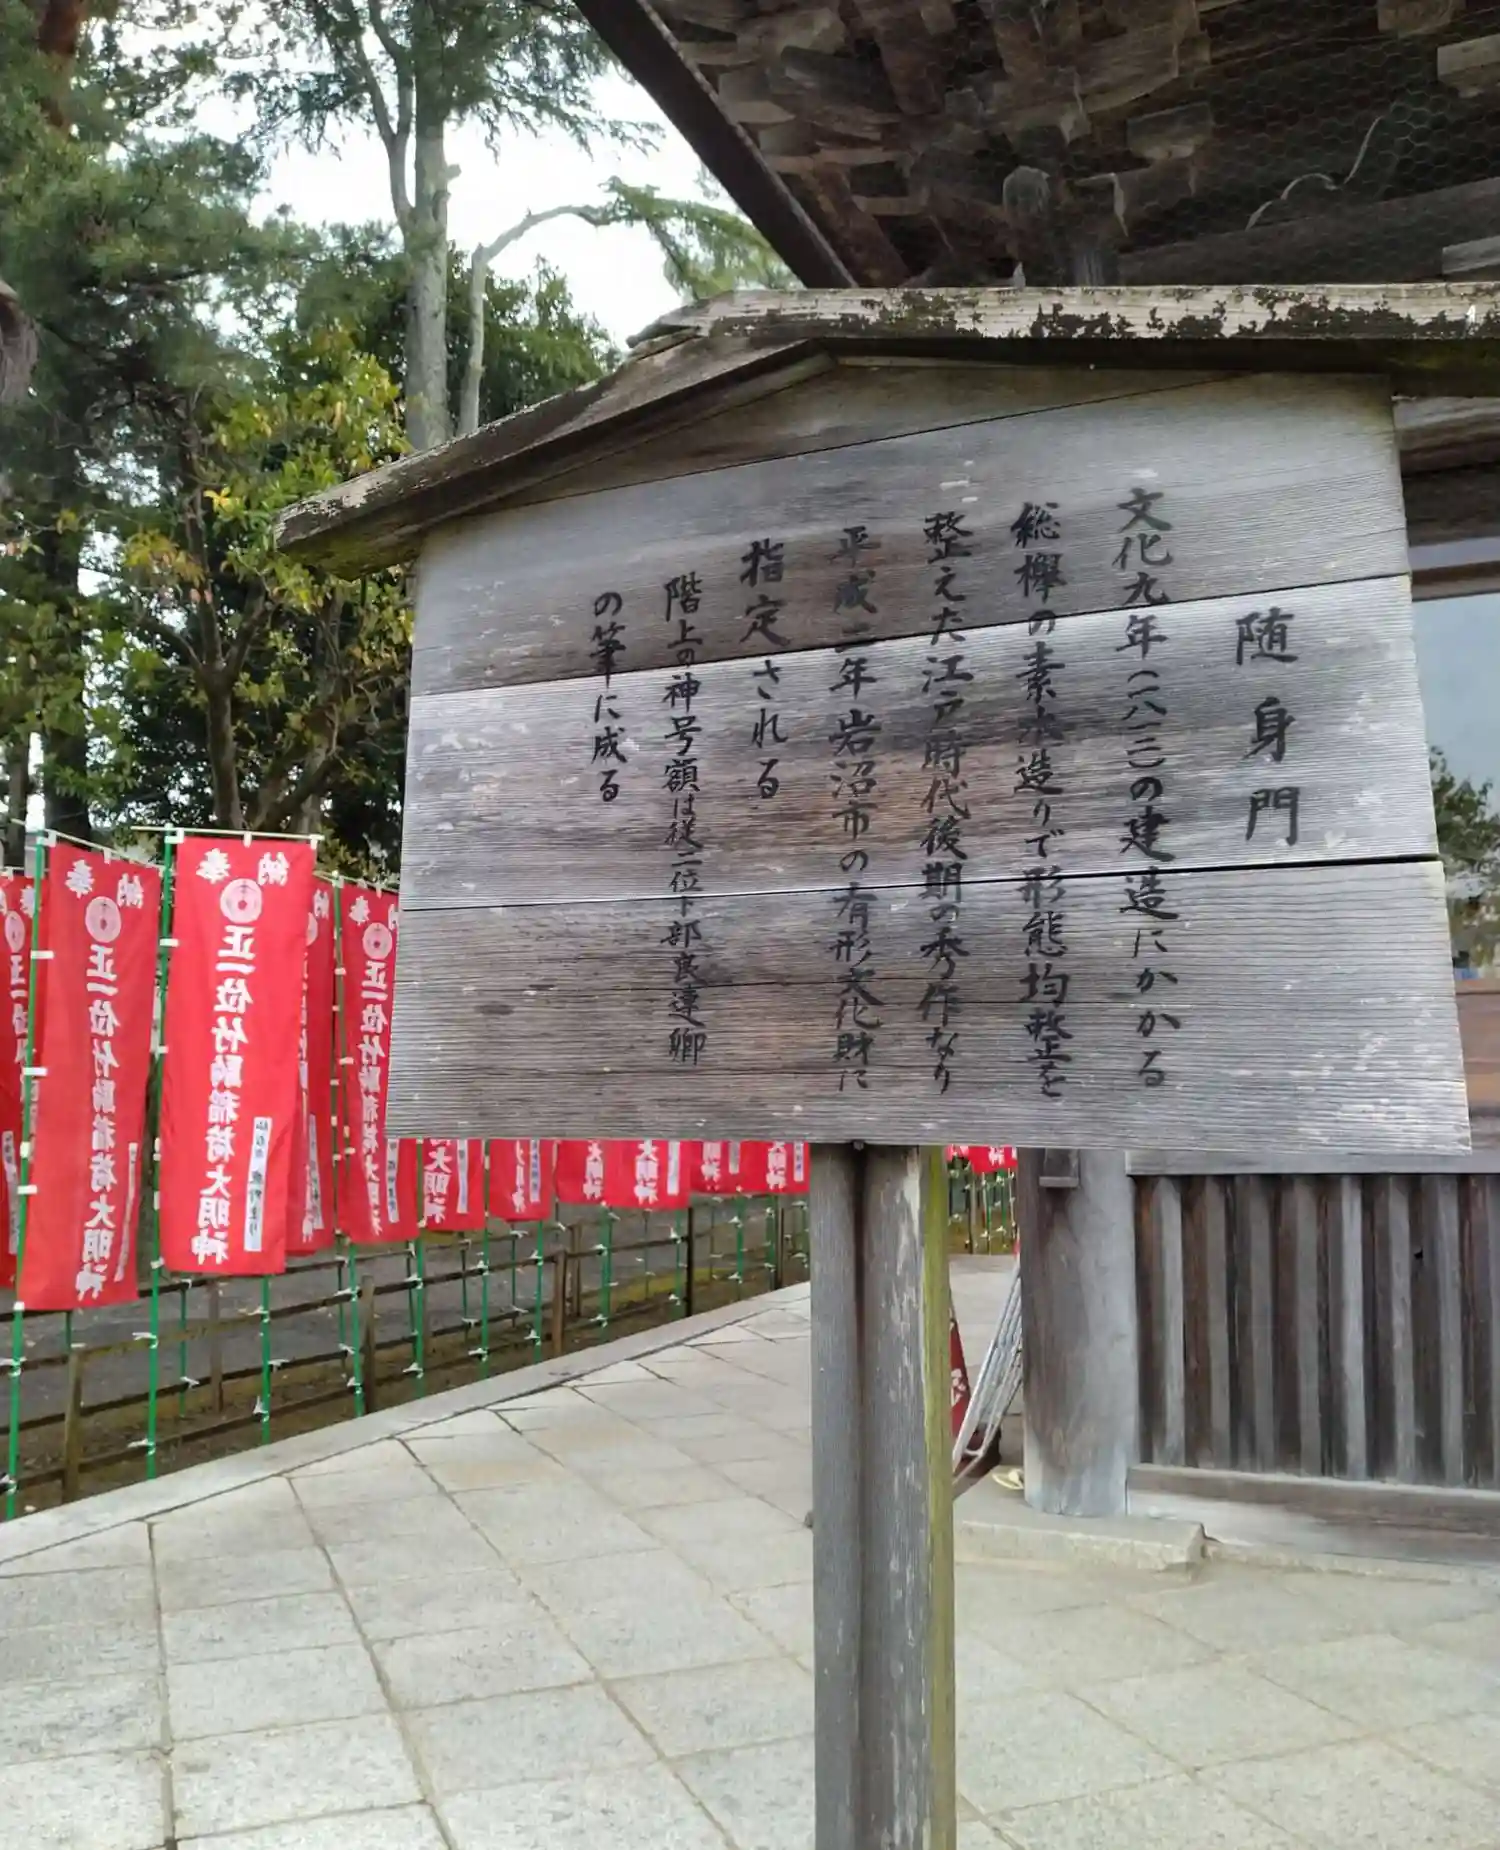 随身門
文化九年(一八一二)の建造にかかる
総欅の素木造りで形態均整を
整えた江戸時代後期の秀作なり
平成二年岩沼市の有形文化財に
指定される
階上の神号額は従二位卜部良連卿
の筆に成る
奉納
正一位竹駒稲荷大明神
奉納
正一位竹駒稲荷大明神
正一位竹駒稲荷大明神
大明神
大明神
大明神